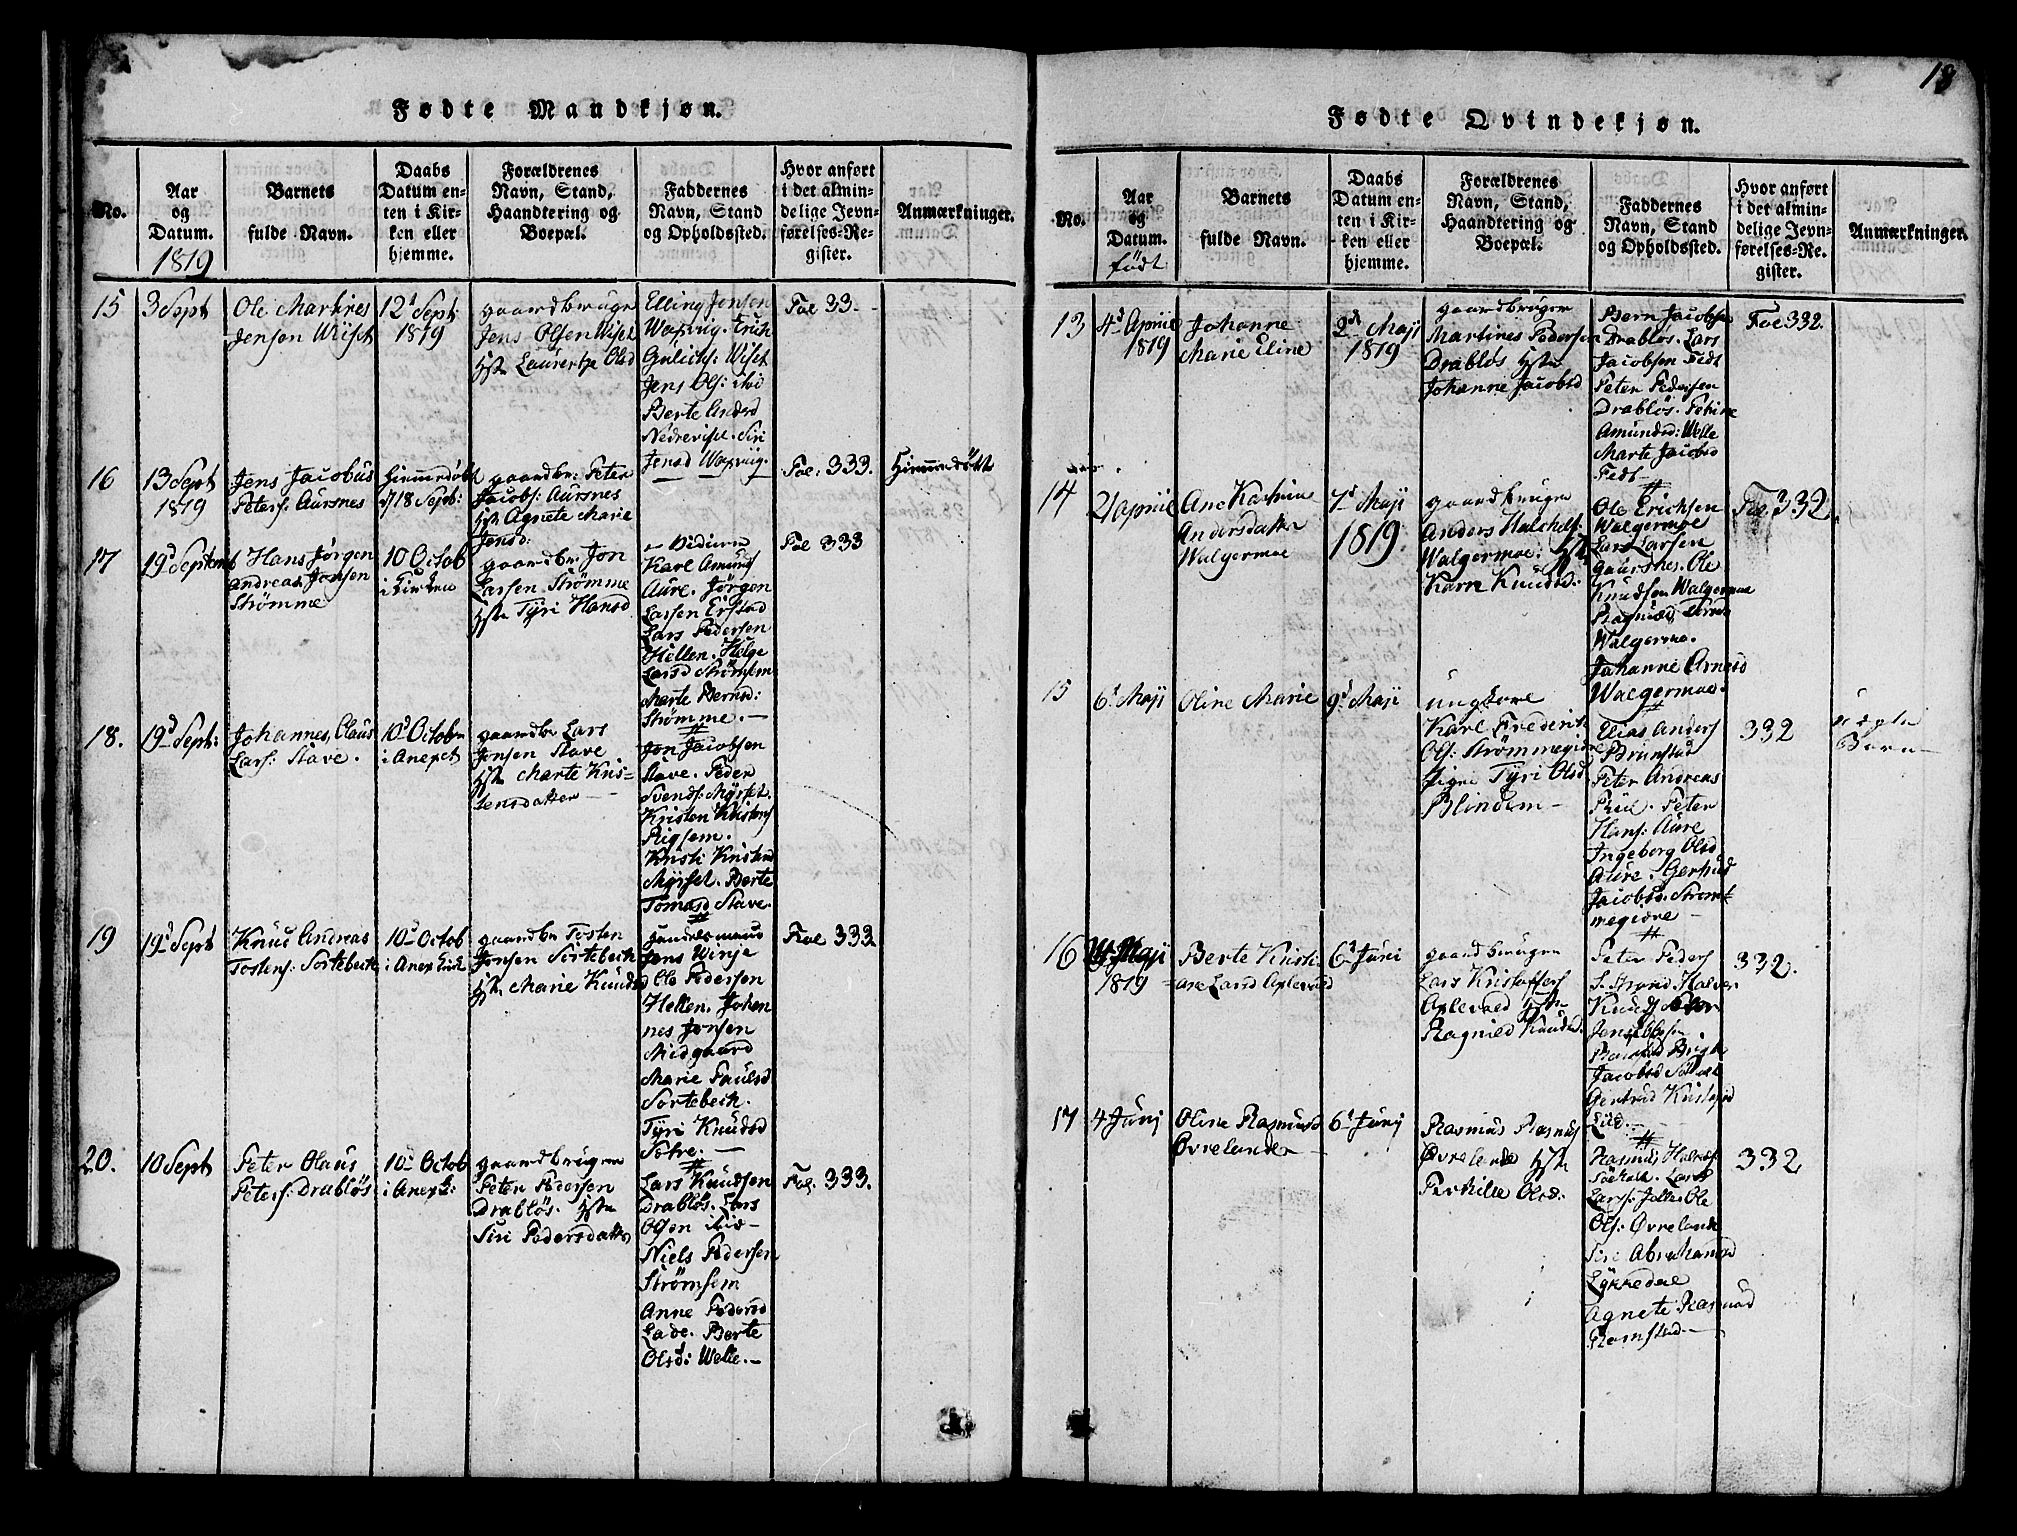 18
Fødte Mandkjøn.
No.
Aar
og
Datum.
1819
Barnets
fulde Navn.
Daabs
Datum en-
ten i Kir-
ken eller
hjemme.
Forældrenes
Navn, Stand,
Haandtering og
Boepæl.
Faddernes
Navn, Stand
og Opholdssted.
Hvor anført
i det almin-
delige Jevn-
førelses-Re-
gister.
Anmærkninger.
15
3 Sept
Ole Martines
Jensen Wiset
12t Sept
1819
gaardbruger
Jens Olsen Wiset
Hst Laurentze Olsd
Elling Jensen
Waxvig. Erich
Gulichs: Wiset
Jens Ols: ibid
Berte Andsd
Nedrevise. Siri
Jensd Waxvig.
Foe 33
16
13 Sept
1819
Jens Jacobus
Peters: Aursnes
hiemmedøbt
d 18 Sept:
gaardbr: Peter
Jacobs: Aursnes
Hst Agnete Marie
Jensd:
Foe: 333.
Hiemmedøbt
17
19d Septemb
Hans Jørgen
Andreas Jonsen
Strømme
10 Octob
i Kirken
gaardbr Jon
Larsen Strømme
Hst Tÿri Hansd
Karl Amund
Aure. Jørgen
Larsen Erstad
Lars Pedersen
Hellen. Helge
Larsd Strømsem
Marte Bernsd:
Strømme.
Foe 333
18.
19d Sept:
Johannes Claus
Lars: Stave.
10d Octob
i Anexet
gaardbr Lars
Jonsen Stave
Hst Marte Kris-
tensdatter
Jon Jacobsen
Stave. Peder
Svends: Mÿrset.
Kristen Kristens
Rigsem.
Kristi Kristensd
Mÿrset. Berte
Tomasd Stave.
19
19d Sept
Knud Andreas
Tostens: Sortebech
10d Octob
i Anex Kirk
gaardbr Tosten
Jonsen Sortebech
Hst Marie Knudsd
Jens Winje
Ole Pedersen
Hellen. Johan
nes Jonsen
Midgaard
Marie Paulsd
Sortebech.
Tÿri Knudsd
Foe 333
20.
10 Sept
Peter Olaus
Peters: Drabløs
10d Octob
i Anex K:
gaardbrugeren
Peter Pedersen
Drabløs. Hst
Siri Pedersdatter
Lars Knudsen
Drabløs. Lars
Olsen ibid
Niels Pedersen
Strømsem
Anne Pedersd
Lade. Berte
Olsd: Welle.
Foe. 333.
Fødte Qvindekjøn.
No.
Aar
og
Datum.
født
Barnets
fulde Navn.
Daabs
Datum en-
ten i Kir-
ken eller
hjemme.
Forældrenes
Navn, Stand,
Haandtering og
Boepæl.
Faddernes
Navn, Stand
og Opholdssted.
Hvor anført
i det almin-
delige Jevn-
førelses-Re-
gister.
Anmærkninger.
13
4d Apriil
1819
Johanne
Marie Eline
2d Maji
1819
gaardbruger
Martines Pedersen
Drabløs Hst
Johanne Jacobsd
Bern Jacobsen
Drabløs. Lars
Jacobsen Fedt
Peter Pedersen
Drabløs.
Amundsd: Welle
Marte Jacobsd
Fedt
Foe 332.
14
21 Apriil
Ane Katrine
Andersdatter
Walgermoe
7d Maji
1819.
gaardbruger
Anders
Walgermoe. Hst
Karn Knudsd:
Ole Erichsen
Walgermoe
Lars Larsen
Gaursnes. Ole
Knudsen Walgermoe
Walgermoe.
Johanne Arnesd
Walgermoe.
Foe. 332
15
6d Maji
Oline Marie
9d Maji
ungkare
Karl Frederik
Ols: Strømmegidre
Pigen Tÿri Olsd
Blindem
Elias Anders
Brunstad
Peter Andreas
Peter
Hans: Aure
Ingeborg Olsd
Aure. Gertrud
Jacobsd. Strøm-
megidre
332
uægte
Barn
16
Maji
1819
Berte Kristi-
ane Larsd Aplevold
6d Juni
gaardbrugeren
Lars Kristoffers
Aplevold Hst
Ragnild Knudsd.
Peter Peders
Jacobsd
332.
17
4 Junj
Oline Rasmusd
Øvrelande
6d Junj
Rasmus Rasmus
Øvrelande Hst
Perhille Olsd:
Ole
Ols: Øvrelande
Siri Abrahamsd
Lÿkkedal
Agnete Rasmusd
Ramstad.
332